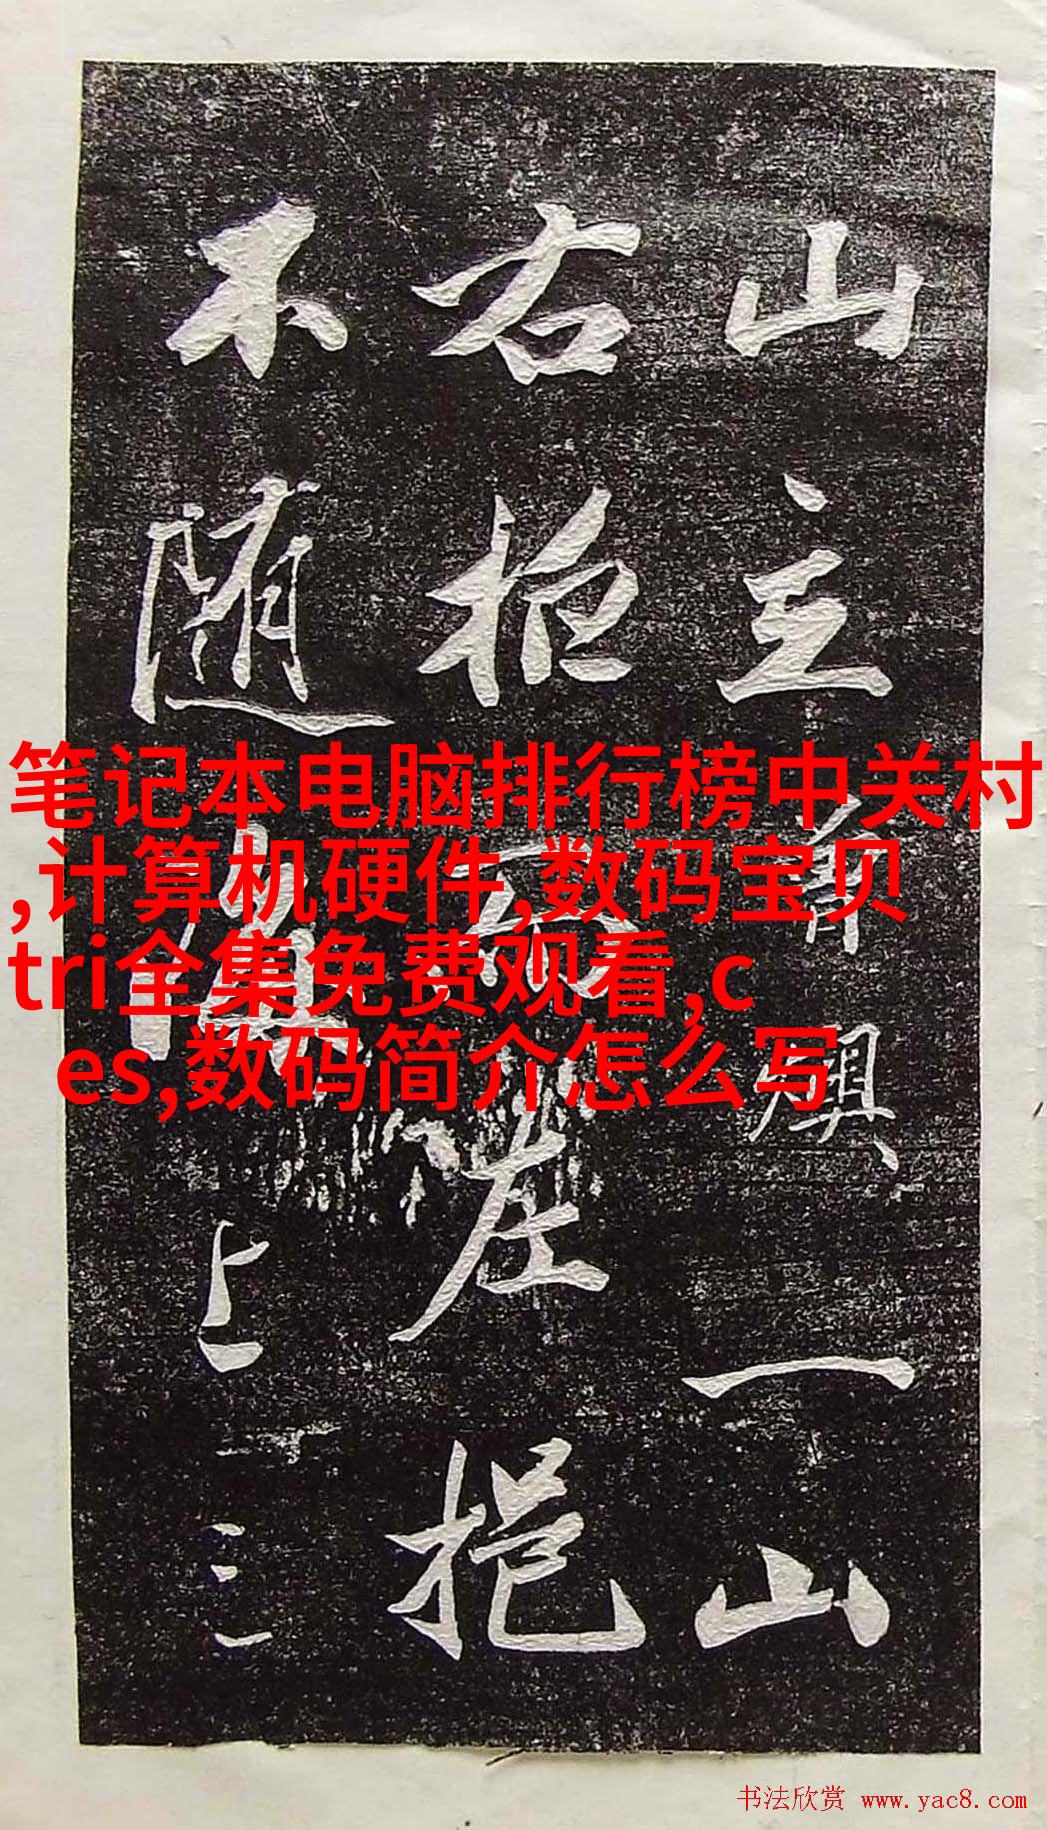 山主有興一山
右拒而左挹
不隨 上三
笔记本电脑排行榜中关村
,计算机硬件,数码宝贝
tri全集免费观看,c
es,数码简介怎么写
书法欣赏 www.yac8.com